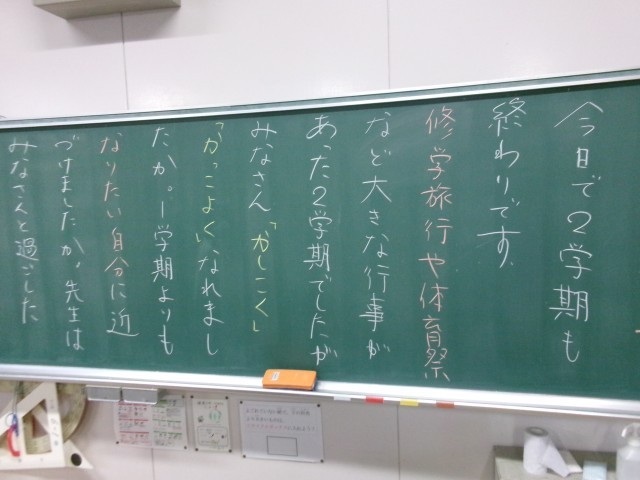 今日で2学期も
終わりです。
修学旅行や体育祭
など大きな行事が
あった2学期でしたが
みなさん「かしこく」
「かっこよく」なれまし
たか。1学期よりも
なりたい自分に近
づけましたか。先生は
みなさんと過ごした